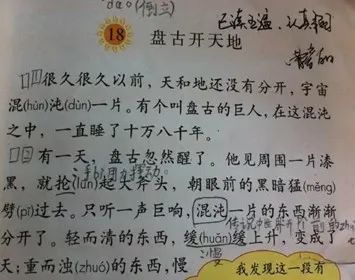 dǎo(倒立)
已读五遍,认真
18 盘古开天地
很久很久以前,天和地还没有分开,宇宙
混(hùn)沌(dùn)一片。有个叫盘古的巨人,在这混沌
之中,一直睡了十万八千年。
有一天,盘古忽然醒了。他见周围一片漆
黑,就抡(lūn)起大斧头,朝眼前的黑暗猛(měng)
劈(pī)过去。只听一声巨响,混沌一片的东西渐渐
分开了。轻而清的东西,缓(huǎn)缓上升,变成了
慢
天;重而浊(zhuó)的东西,慢
我发现这一段有